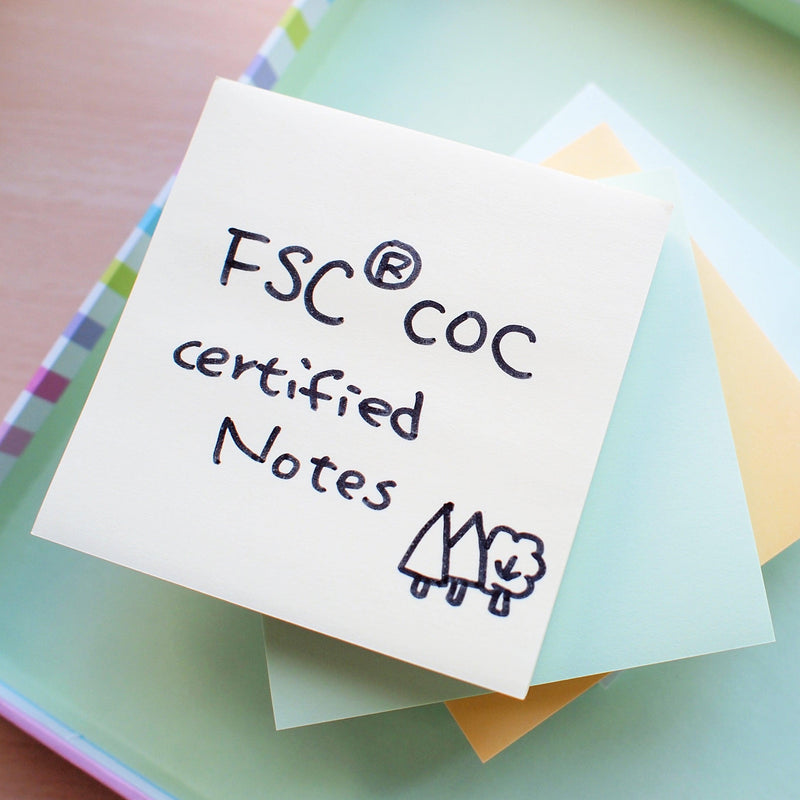 FSC® COC
certified
Notes